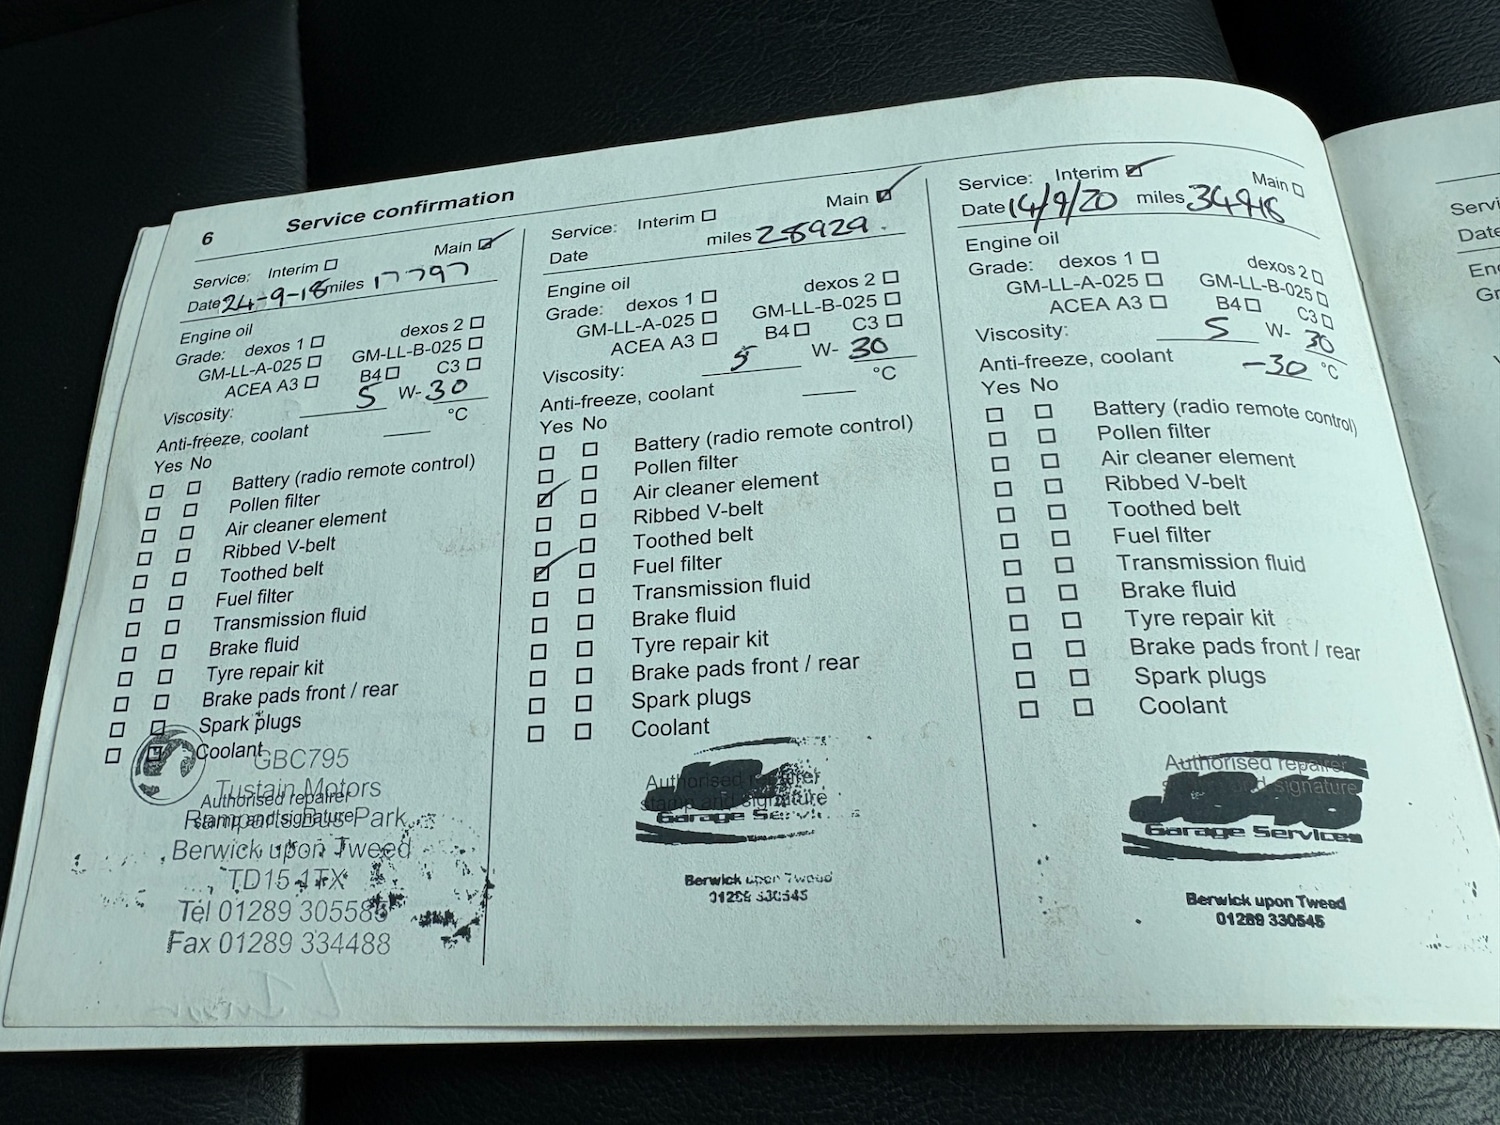 6 Service confirmation
Service: Interim Main
Date 24-9-18 miles 17797
Engine oil
Grade: dexos 1 dexos 2
GM-LL-A-025 GM-LL-B-025
ACEA A3 B4 C3
Viscosity: 5 W- 30
Anti-freeze, coolant °C
Yes No
Battery (radio remote control)
Pollen filter
Air cleaner element
Ribbed V-belt
Toothed belt
Fuel filter
Transmission fluid
Brake fluid
Tyre repair kit
Brake pads front / rear
Spark plugs
Coolant
GBC795
Tustain Motors
Authorised repairer
stamp and signature
Ramparts Bus Park
Berwick upon Tweed
TD15 1TX
Tel 01289 305585
Fax 01289 334488
Service: Interim Main
Date miles 28929
Engine oil
Grade: dexos 1 dexos 2
GM-LL-A-025 GM-LL-B-025
ACEA A3 B4 C3
Viscosity: 5 W- 30
Anti-freeze, coolant °C
Yes No
Battery (radio remote control)
Pollen filter
Air cleaner element
Ribbed V-belt
Toothed belt
Fuel filter
Transmission fluid
Brake fluid
Tyre repair kit
Brake pads front / rear
Spark plugs
Coolant
Authorised repairer
stamp and signature
Garage Services
Berwick upon Tweed
01289 330545
Service: Interim Main
Date 14/9/20 miles 34916
Engine oil
Grade: dexos 1 dexos 2
GM-LL-A-025 GM-LL-B-025
ACEA A3 B4 C3
Viscosity: 5 W- 30
Anti-freeze, coolant -30 °C
Yes No
Battery (radio remote control)
Pollen filter
Air cleaner element
Ribbed V-belt
Toothed belt
Fuel filter
Transmission fluid
Brake fluid
Tyre repair kit
Brake pads front / rear
Spark plugs
Coolant
Authorised repairer
stamp and signature
Garage Services
Berwick upon Tweed
01289 330545
Date